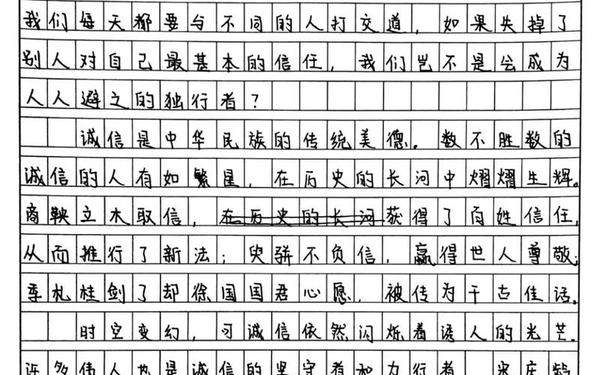 我们每天都要与不同的人打交道，如果失掉了
别人对自己最基本的信任，我们岂不是会成为
人人避之的独行者？
诚信是中华民族的传统美德。数不胜数的
诚信的人有如繁星，在历史的长河中熠熠生辉。
商鞅立木取信，在历史的长河获得了百姓信任，
从而推行了新法；臾骈不负信，赢得世人尊敬；
季札桂剑了却徐国国君心愿，被传为千古佳话。
时空变幻，可诚信依然闪烁着诱人的光芒。
许多伟人是诚信的坚守者和力行者 宋庆龄